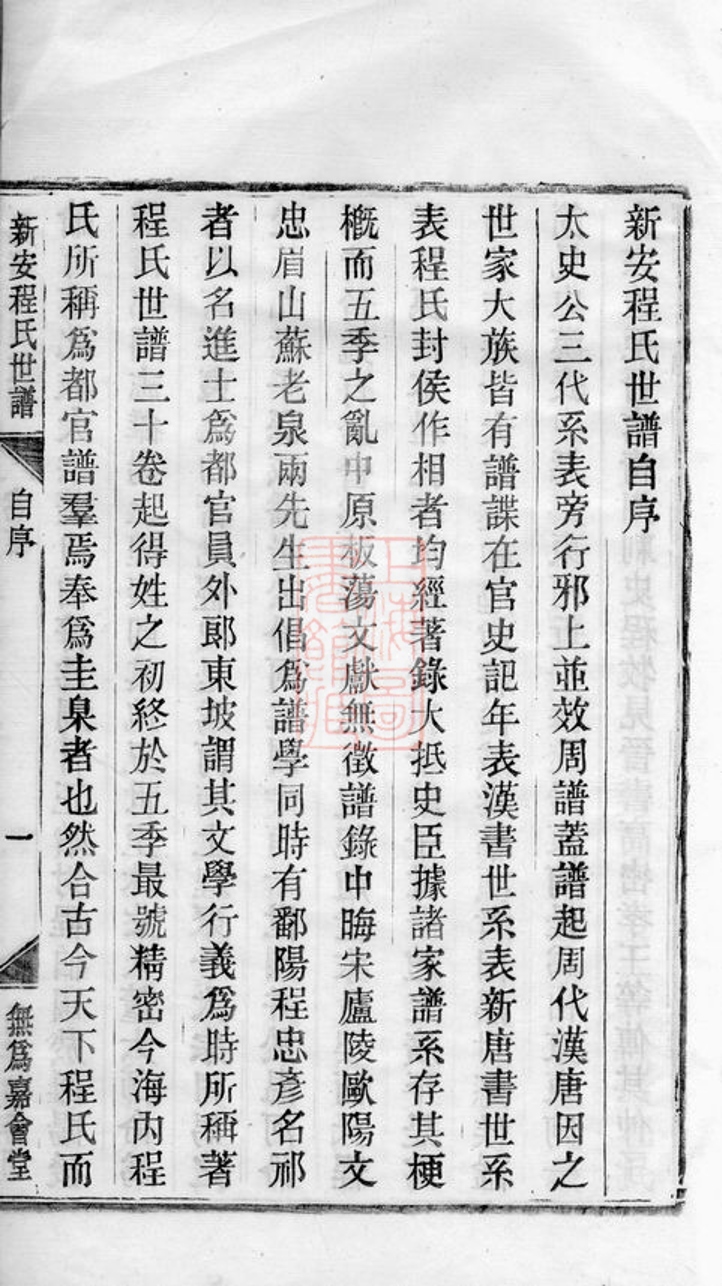 新安程氏世譜自序
太史公三代系表旁行邪上並效周譜蓋譜起周代漢唐因之
世家大族皆有譜諜在官史記年表漢書世系表新唐書世系
表程氏封侯作相者均經著錄大抵史臣據諸家譜系存其梗
槪而五季之亂中原板蕩文獻無徵譜錄中晦宋廬陵歐陽文
忠眉山蘇老泉兩先生出倡爲譜學同時有鄱陽程忠彥名祁
者以名進士爲都官員外郞東坡謂其文學行義爲時所稱著
程氏世譜三十卷起得姓之初終於五季最號精密今海內程
氏所稱爲都官譜羣焉奉爲圭臬者也然合古今天下程氏而
新安程氏世譜
自序
一
無爲嘉會堂
上海圖書館藏